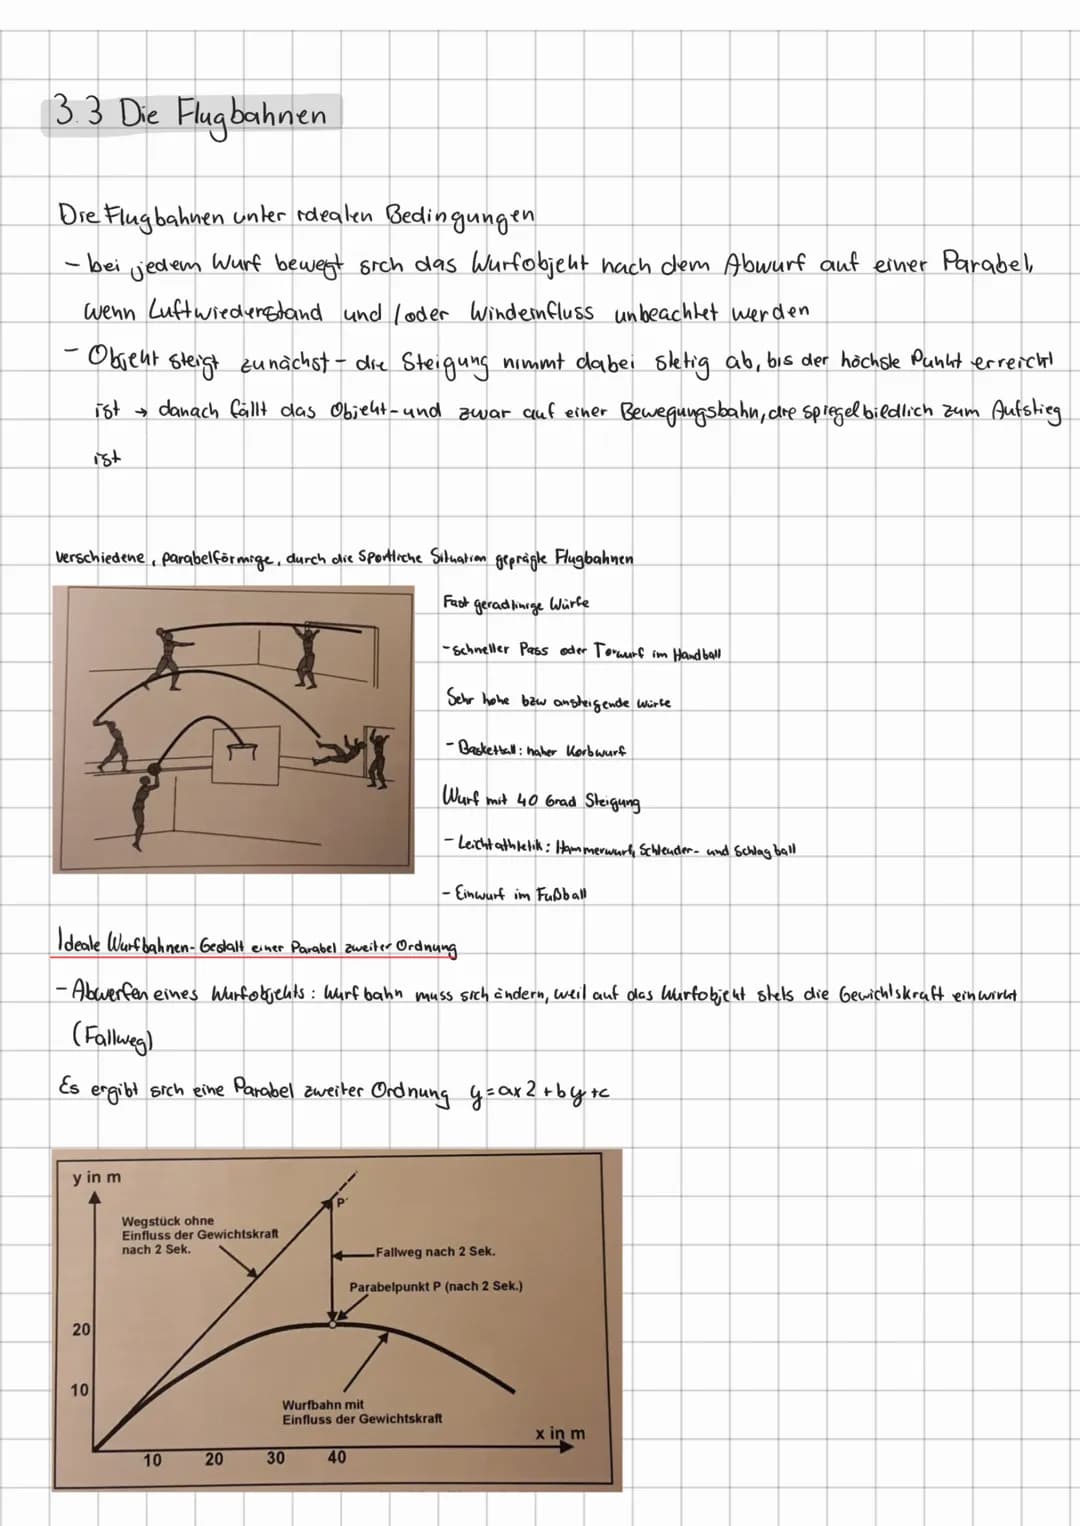 3.3 Die Flugbahnen
Die Flugbahnen unter idealen Bedingungen
- bei jedem Wurf bewegt sich das Wurfobjekt nach dem Abwurf auf einer Parabel,
wenn Luftwiederstand und /oder Windeinfluss unbeachtet werden
- Objekt steigt zunächst - die Steigung nimmt dabei stetig ab, bis der höchste Punkt erreicht
ist → danach fällt das Objekt - und zwar auf einer Bewegungsbahn, die spiegelbildlich zum Aufstieg
ist
verschiedene, parabelförmige, durch die Sportliche Situation geprägte Flugbahnen
Fast geradlinige Würfe
- schneller Pass oder Torwurf im Handball
Sehr hohe bzw ansteigende Würfe
- Basketball: naher Korbwurf
Wurf mit 40 Grad Steigung
- Leichtathletik: Hammerwurf, Schleuder- und Schlagball
- Einwurf im Fußball
Ideale Wurfbahnen - Gestalt einer Parabel zweiter Ordnung
- Abwerfen eines Wurfobjekts: Wurfbahn muss sich ändern, weil auf das Wurfobjekt stets die Gewichtskraft einwirkt
(Fallweg)
Es ergibt sich eine Parabel zweiter Ordnung y=ax2+by+c
y in m
P'
Wegstück ohne
Einfluss der Gewichtskraft
nach 2 Sek.
Fallweg nach 2 Sek.
Parabelpunkt P (nach 2 Sek.)
20
10
Wurfbahn mit
Einfluss der Gewichtskraft
x in m
10 20 30 40